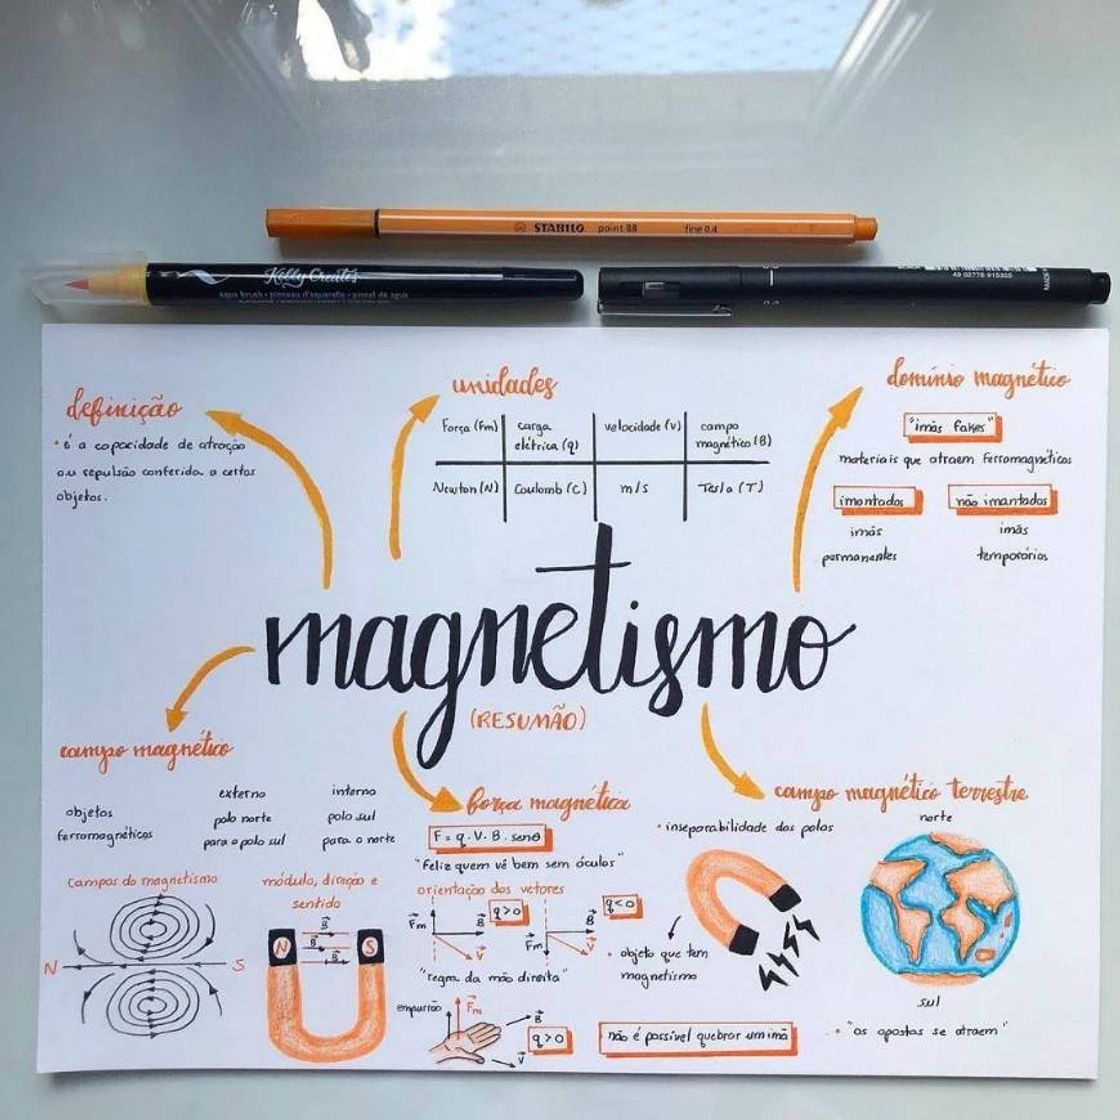 STABILO point 88 fine 0.4
Kelly Creates
aqua brush • pinceau d'aquarelle • pincel de agua
49 02778 915305
definição
• é a capacidade de atração
ou repulsão conferida a certos
objetos.
unidades
Força (Fm) carga elétrica (q) velocidade (v) campo magnético (B)
Newton (N) Coulomb (C) m/s Tesla (T)
domínio magnético
"imãs fakes"
materiais que atraem ferromagnéticos
imantados não imantados
imãs imãs
permanentes temporários
magnetismo
(RESUMÃO)
campo magnético
objetos
ferromagnéticos
externo
polo norte
para o polo sul
interno
polo sul
para o norte
campos do magnetismo
N S
módulo, direção e
sentido
B
B
B
N S
força magnética
F = q . V . B . senθ
"Feliz quem vê bem sem óculos"
orientação dos vetores
Fm B q>0 V
Fm B q<0 V
"regra da mão direita"
empurrão Fm B
q>0
V
campo magnético terrestre
• inseparabilidade dos polos
• objeto que tem
magnetismo
não é possível quebrar um imã
norte
sul
• "os opostos se atraem"